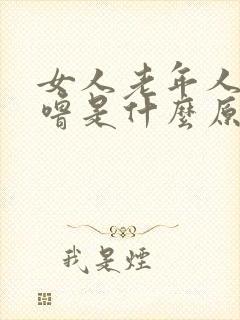 女人老年人
嘈是什麼原
我是煙